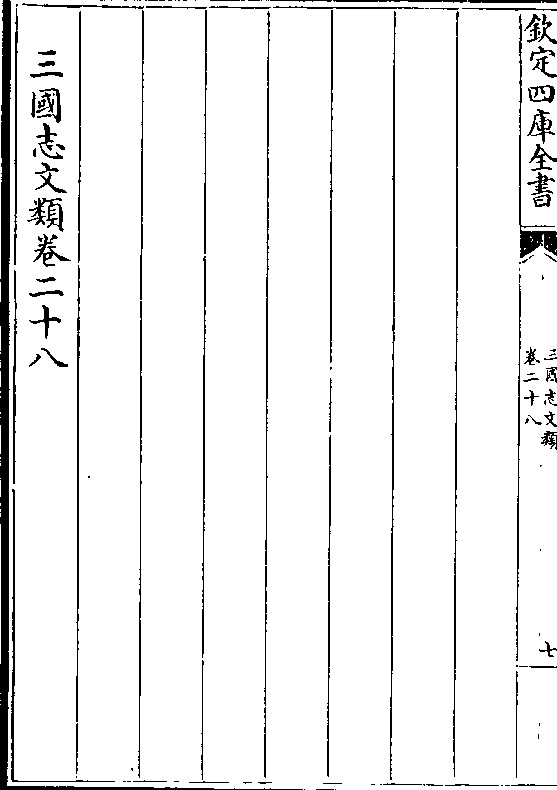 欽定四庫全書
三國志文類
卷二十八
七
三國志文類卷二十八